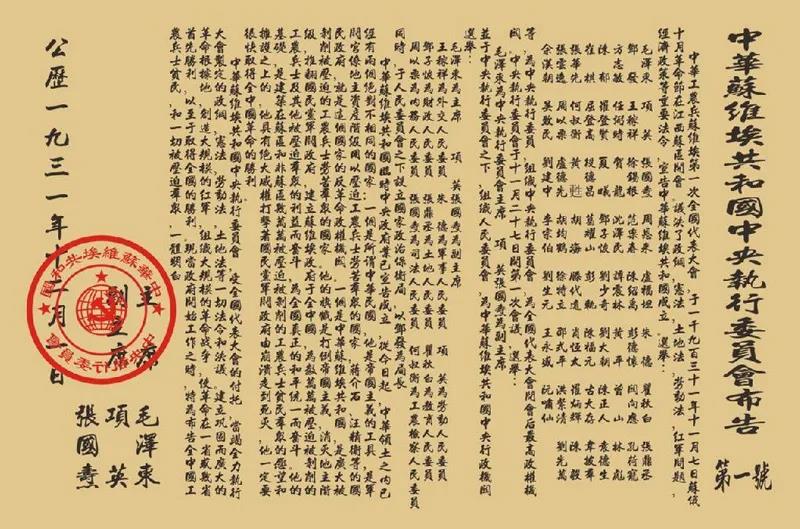 中華蘇維埃共和國中央執行委員會布告
第一號
中華工農兵蘇維埃第一次全國代表大會，于一千九百三十一年十一月七日蘇俄
十月革命節在江西蘇區開會。議決了政綱，憲法，土地法，勞動法，紅軍問題，
經濟政策等重要法令，宣告中華蘇維埃共和國成立。選舉：
毛澤東 項英 張國燾 周恩來 盧福坦 朱德 瞿秋白 張鼎丞
鄧發 王稼祥 徐錫根 范樂春 陳紹禹 彭德懷 關向應 孔荷寵
方志敏 任弼時 賀龍 沈澤民 譚震林 黃平 曾山 林彪
陳郁 羅登賢 夏曦 鄧子恢 劉少奇 劉大朝 陳正人 袁德生
崔棋 屈登高 段德昌 葛耀山 彭軌 陳福元 古大存 韋拔群
張華先 何叔衡 黃甦 胡海 滕代遠 肖恆太 羅炳輝 陳毅
張雲逸 周以栗 盧德先 胡均鶴 徐特立 邵式平 洪紫清 劉先萬
余漢朝 吳致民 劉建中 李宗伯 劉生元 王永盛 阮嘯仙
等，為中央執行委員會，組織中央執行委員會，為全國代表大會閉會后最高政權機
關。中央執行委員會于十一月二十七日開第一次會議，選舉：
毛澤東為中央執行委員會主席 項英張國燾為副主席
並于中央執行委員會之下，組織人民委員會，為中央執行委員會中央行政機關
選舉：
毛澤東為主席 項英張國燾為副主席
王稼祥為外交人民委員 朱德為軍事人民委員 項英為勞動人民委員
鄧子恢為財政人民委員 張鼎丞為土地人民委員 瞿秋白為教育人民委員
周以栗為內務人民委員 張國燾為司法人民委員 何叔衡為工農檢察人民委員
同時，于人民委員會之下設立國家政治保衛局，以鄧發為局長
中華蘇維埃共和國臨時中央政府業已宣告成立。從今日起，中華領土之內已
經有兩個絕對不相同的國家：一個是所謂中華民國，他是帝國主義的工具，是軍
閥官僚地主資產階級用以壓迫工農兵士勞苦群眾的國家，蔣介石，汪精衛等的國
民政府，就是這個國家的反革命政權機關。一個是中華蘇維埃共和國，是廣大被
剝削被壓迫的工農兵士勞苦群眾的國家，他的旗幟是打倒帝國主義，消滅地主階
級，推翻國民黨軍閥政府，建立蘇維埃政府于全中國，為數萬萬被壓迫被剝削的
工農兵士及其他被壓迫群眾的利益而奮斗，為全國真正的和平統一而奮斗。他的
基礎，是建筑在蘇區和非蘇區數萬萬被壓迫被剝削的工農兵士貧民群眾的願望和
擁護之上的，他具有絕大威權打擊著國民黨軍閥政府由崩潰走到死滅，他一定要
很快取得全中國革命的勝利。
中華蘇維埃共和國中央執行委員會，受全國代表大會的付托，當竭全力執行
大會製定的政綱，憲法，勞動法，土地法等一切法令和決議。建立鞏固而廣大的
革命根據地，創造大規模的紅軍，組織大規模的革命戰爭，使革命在一省或數省
首先勝利，以至于取得全國的勝利。現當政府開始工作之時，特為布告全中國工
農兵士貧民，和一切被壓迫群眾，一體明白
主席 毛澤東
副主席 項英
張國燾
公歷一九三一年十二月一日
中華蘇維埃共和國
中央執行委員會